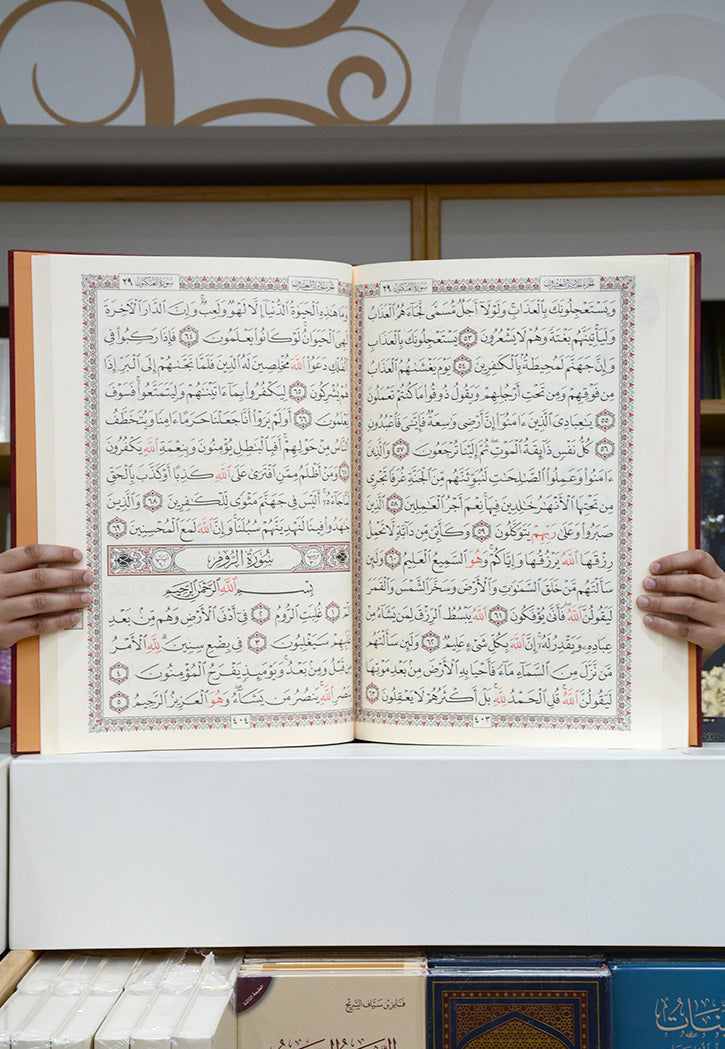 سورة العنكبوت ٢٩
الجزء الحادي والعشرون
وَيَسْتَعْجِلُونَكَ بِالْعَذَابِ وَلَوْلَا أَجَلٌ مُّسَمًّى لَّجَاءَهُمُ الْعَذَابُ
وَلَيَأْتِيَنَّهُم بَغْتَةً وَهُمْ لَا يَشْعُرُونَ ٥٣ يَسْتَعْجِلُونَكَ بِالْعَذَابِ
وَإِنَّ جَهَنَّمَ لَمُحِيطَةٌ بِالْكَافِرِينَ ٥٤ يَوْمَ يَغْشَاهُمُ الْعَذَابُ
مِن فَوْقِهِمْ وَمِن تَحْتِ أَرْجُلِهِمْ وَيَقُولُ ذُوقُوا مَا كُنتُمْ تَعْمَلُونَ
٥٥ يَاعِبَادِيَ الَّذِينَ ءَامَنُوا إِنَّ أَرْضِي وَاسِعَةٌ فَإِيَّايَ فَاعْبُدُونِ
٥٦ كُلُّ نَفْسٍ ذَائِقَةُ الْمَوْتِ ثُمَّ إِلَيْنَا تُرْجَعُونَ ٥٧ وَالَّذِينَ
ءَامَنُوا وَعَمِلُوا الصَّالِحَاتِ لَنُبَوِّئَنَّهُم مِّنَ الْجَنَّةِ غُرَفًا تَجْرِي
مِن تَحْتِهَا الْأَنْهَارُ خَالِدِينَ فِيهَا نِعْمَ أَجْرُ الْعَامِلِينَ ٥٨ الَّذِينَ
صَبَرُوا وَعَلَى رَبِّهِمْ يَتَوَكَّلُونَ ٥٩ وَكَأَيِّن مِّن دَابَّةٍ لَّا تَحْمِلُ
رِزْقَهَا اللَّهُ يَرْزُقُهَا وَإِيَّاكُمْ وَهُوَ السَّمِيعُ الْعَلِيمُ ٦٠ وَلَئِن
سَأَلْتَهُم مَّنْ خَلَقَ السَّمَاوَاتِ وَالْأَرْضَ وَسَخَّرَ الشَّمْسَ وَالْقَمَرَ
لَيَقُولُنَّ اللَّهُ فَأَنَّى يُؤْفَكُونَ ٦١ اللَّهُ يَبْسُطُ الرِّزْقَ لِمَن يَشَاءُ مِنْ
عِبَادِهِ وَيَقْدِرُ لَهُ إِنَّ اللَّهَ بِكُلِّ شَيْءٍ عَلِيمٌ ٦٢ وَلَئِن سَأَلْتَهُم
مَّن نَّزَّلَ مِنَ السَّمَاءِ مَاءً فَأَحْيَا بِهِ الْأَرْضَ مِن بَعْدِ مَوْتِهَا
لَيَقُولُنَّ اللَّهُ قُلِ الْحَمْدُ لِلَّهِ بَلْ أَكْثَرُهُمْ لَا يَعْقِلُونَ ٦٣
٤٠٣
الجزء الحادي والعشرون
سورة العنكبوت ٢٩
وَمَا هَذِهِ الْحَيَاةُ الدُّنْيَا إِلَّا لَهْوٌ وَلَعِبٌ وَإِنَّ الدَّارَ الْآخِرَةَ
لَهِيَ الْحَيَوَانُ لَوْ كَانُوا يَعْلَمُونَ ٦٤ فَإِذَا رَكِبُوا فِي
الْفُلْكِ دَعَوُا اللَّهَ مُخْلِصِينَ لَهُ الدِّينَ فَلَمَّا نَجَّاهُمْ إِلَى الْبَرِّ إِذَا
هُمْ يُشْرِكُونَ ٦٥ لِيَكْفُرُوا بِمَا ءَاتَيْنَاهُمْ وَلِيَتَمَتَّعُوا فَسَوْفَ
يَعْلَمُونَ ٦٦ أَوَلَمْ يَرَوْا أَنَّا جَعَلْنَا حَرَمًا ءَامِنًا وَيُتَخَطَّفُ
النَّاسُ مِنْ حَوْلِهِمْ أَفَبِالْبَاطِلِ يُؤْمِنُونَ وَبِنِعْمَةِ اللَّهِ يَكْفُرُونَ
٦٧ وَمَنْ أَظْلَمُ مِمَّنِ افْتَرَى عَلَى اللَّهِ كَذِبًا أَوْ كَذَّبَ بِالْحَقِّ
لَمَّا جَاءَهُ أَلَيْسَ فِي جَهَنَّمَ مَثْوًى لِّلْكَافِرِينَ ٦٨ وَالَّذِينَ
جَاهَدُوا فِينَا لَنَهْدِيَنَّهُمْ سُبُلَنَا وَإِنَّ اللَّهَ لَمَعَ الْمُحْسِنِينَ ٦٩
سُورَةُ الرُّومِ
بِسْمِ اللَّهِ الرَّحْمَنِ الرَّحِيمِ
الم ١ غُلِبَتِ الرُّومُ ٢ فِي أَدْنَى الْأَرْضِ وَهُم مِّن بَعْدِ
غَلَبِهِمْ سَيَغْلِبُونَ ٣ فِي بِضْعِ سِنِينَ لِلَّهِ الْأَمْرُ
مِن قَبْلُ وَمِن بَعْدُ وَيَوْمَئِذٍ يَفْرَحُ الْمُؤْمِنُونَ ٤
بِنَصْرِ اللَّهِ يَنصُرُ مَن يَشَاءُ وَهُوَ الْعَزِيزُ الرَّحِيمُ ٥
٤٠٤
فايز بن سياف السريح